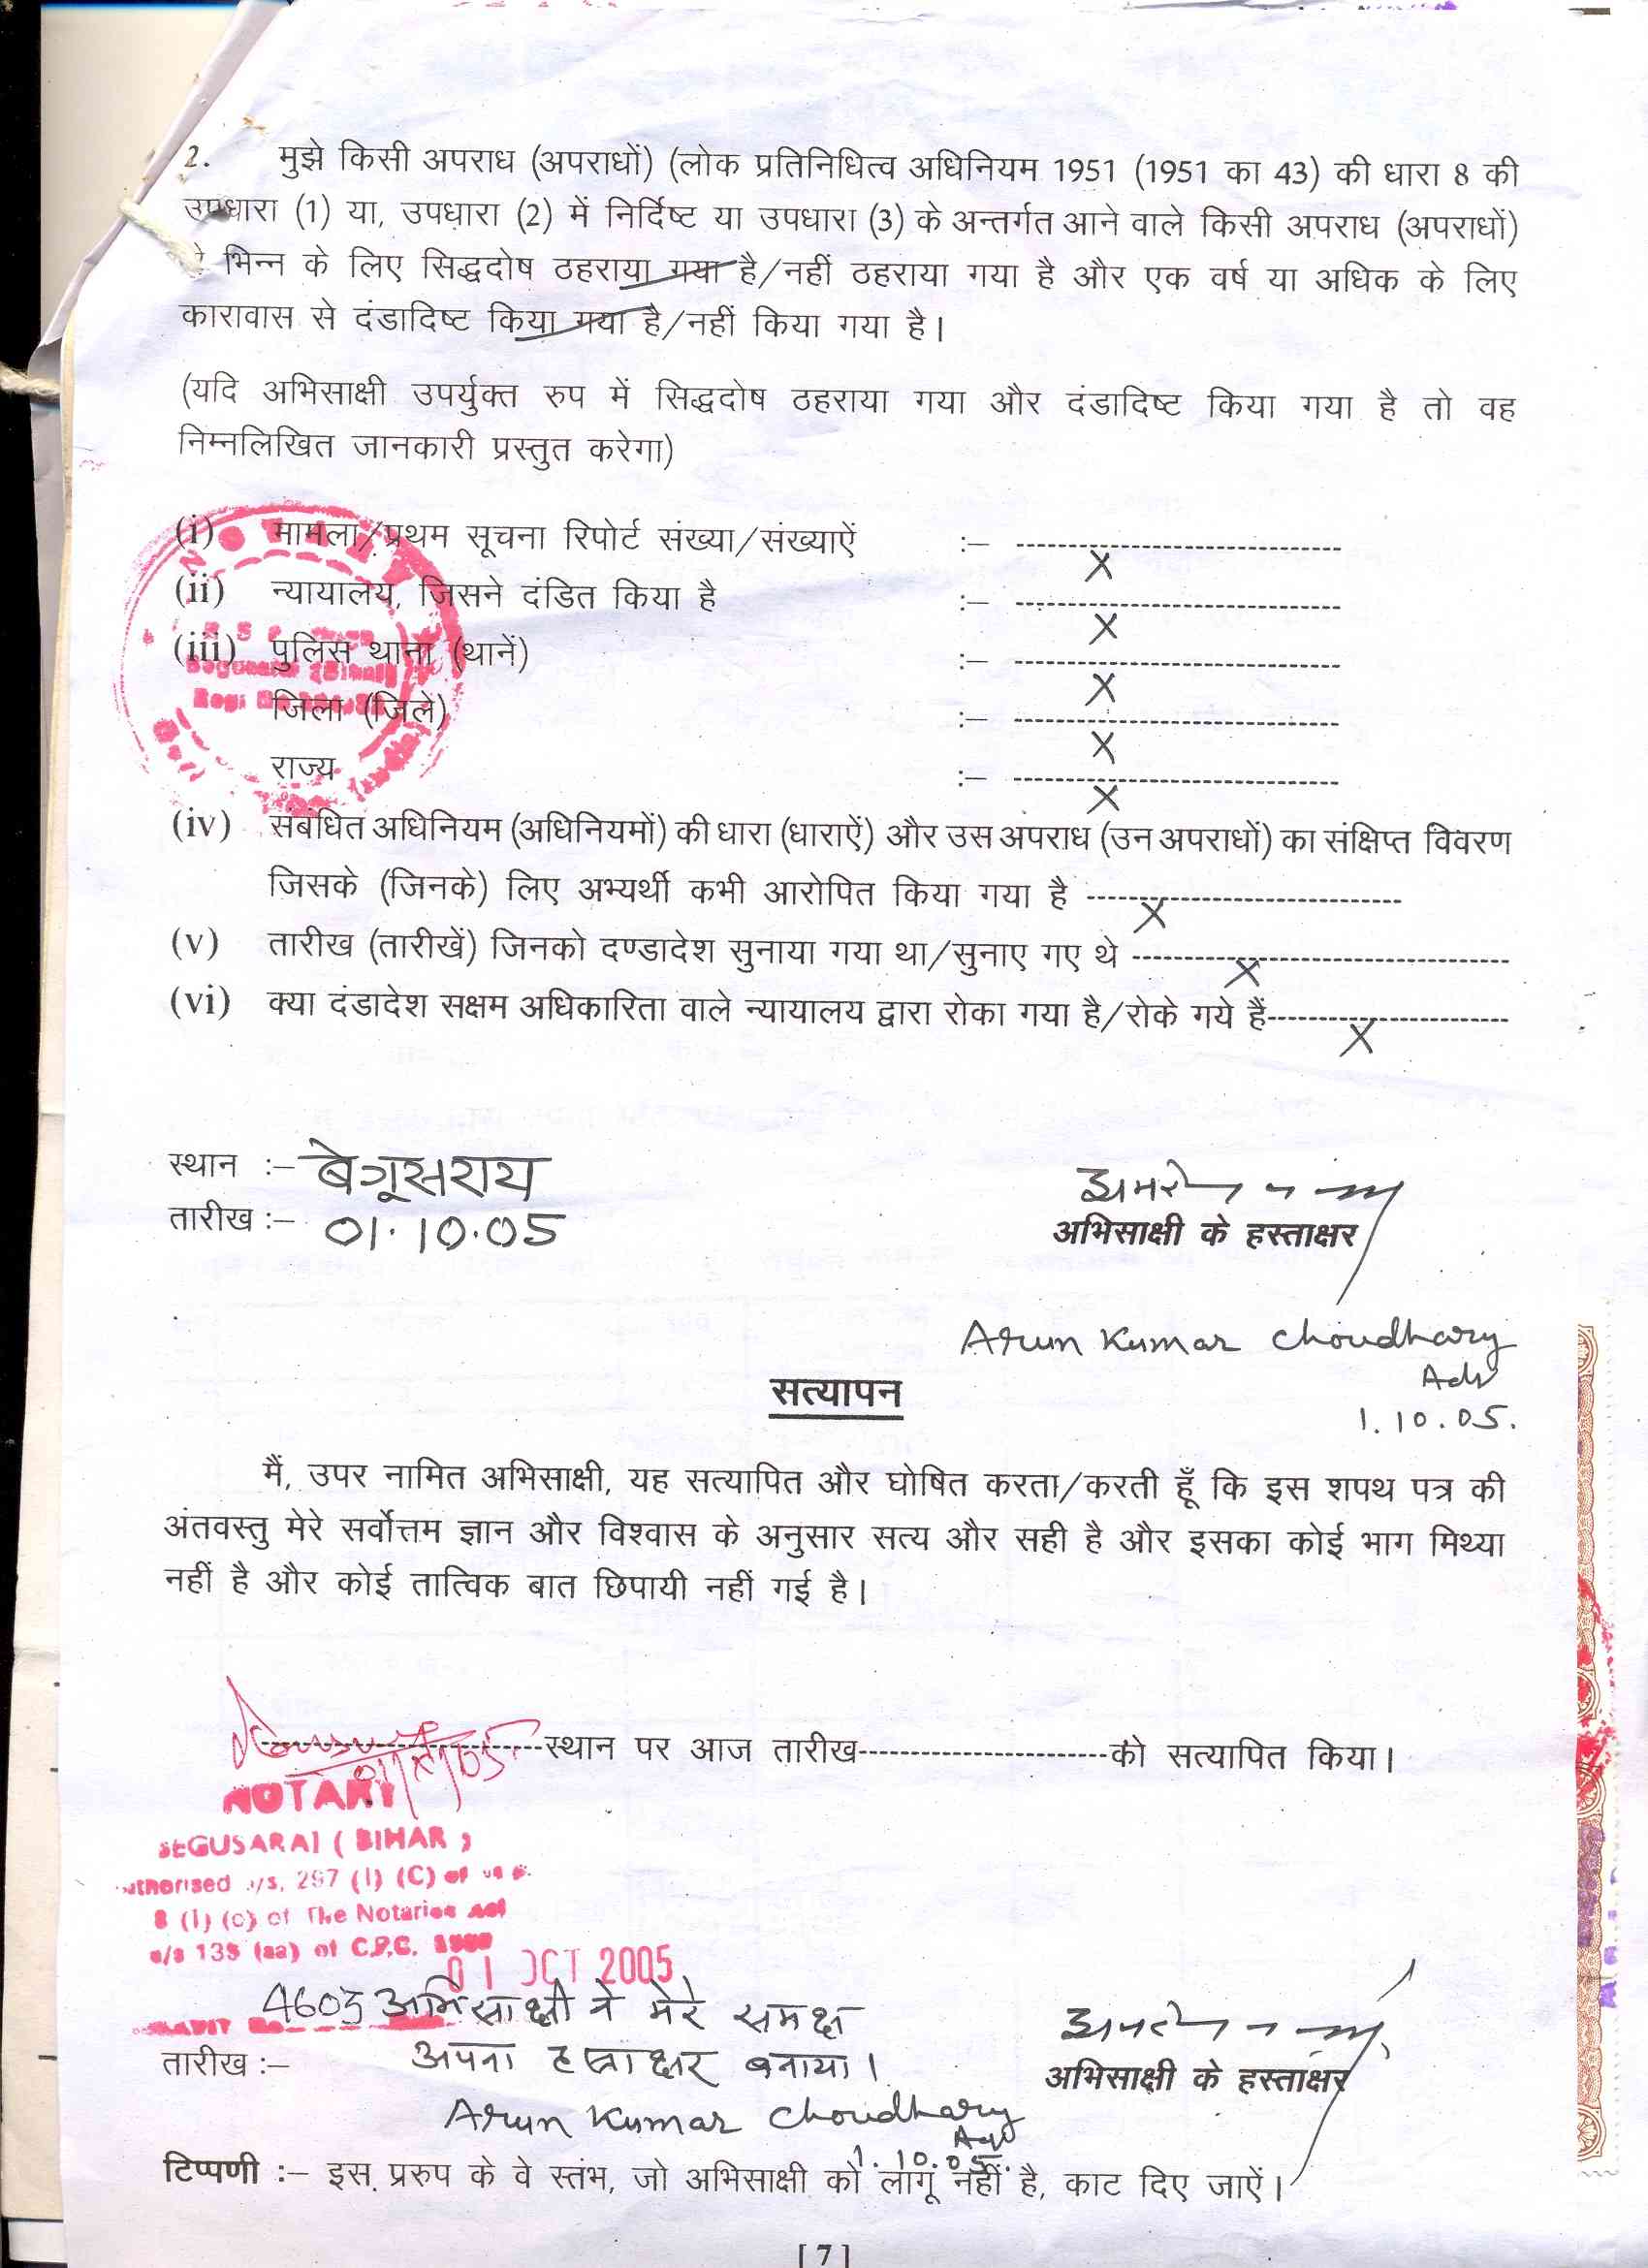 2. मुझे किसी अपराध (अपराधों) (लोक प्रतिनिधित्व अधिनियम 1951 (1951 का 43) की धारा 8 की
उपधारा (1) या, उपधारा (2) में निर्दिष्ट या उपधारा (3) के अन्तर्गत आने वाले किसी अपराध (अपराधों)
भिन्न के लिए सिद्धदोष ठहराया गया है/नहीं ठहराया गया है और एक वर्ष या अधिक के लिए
कारावास से दंडादिष्ट किया गया है/नहीं किया गया है।
(यदि अभिसाक्षी उपर्युक्त रुप में सिद्धदोष ठहराया गया और दंडादिष्ट किया गया है तो वह
निम्नलिखित जानकारी प्रस्तुत करेगा)
(i) मामला/प्रथम सूचना रिपोर्ट संख्या/संख्याऐं :– X
(ii) न्यायालय, जिसने दंडित किया है :– X
(iii) पुलिस थाना (थानें) :– X
जिला (जिले) :– X
राज्य :– X
(iv) संबंधित अधिनियम (अधिनियमों) की धारा (धाराऐं) और उस अपराध (उन अपराधों) का संक्षिप्त विवरण
जिसके (जिनके) लिए अभ्यर्थी कभी आरोपित किया गया है X
(v) तारीख (तारीखें) जिनको दण्डादेश सुनाया गया था/सुनाए गए थे X
(vi) क्या दंडादेश सक्षम अधिकारिता वाले न्यायालय द्वारा रोका गया है/रोके गये हैं X
स्थान :– बेगूसराय
तारीख :– 01.10.05
अभिसाक्षी के हस्ताक्षर
Arun Kumar Choudhary
Adv
1.10.05.
सत्यापन
मैं, उपर नामित अभिसाक्षी, यह सत्यापित और घोषित करता/करती हूँ कि इस शपथ पत्र की
अंतवस्तु मेरे सर्वोत्तम ज्ञान और विश्वास के अनुसार सत्य और सही है और इसका कोई भाग मिथ्या
नहीं है और कोई तात्विक बात छिपायी नहीं गई है।
स्थान पर आज तारीख को सत्यापित किया।
NOTARY
BEGUSARAI ( BIHAR )
8 (I) (c) of The Notaries Act
u/s 139 (aa) of C.P.C.
01 OCT 2005
4603 अभिसाक्षी ने मेरे समक्ष
तारीख :– अपना हस्ताक्षर बनाया।
अभिसाक्षी के हस्ताक्षर
Arun Kumar Choudhary
Adv
1.10.05.
टिप्पणी :– इस प्ररुप के वे स्तंभ, जो अभिसाक्षी को लागू नहीं है, काट दिए जाऐं।
[ 7 ]